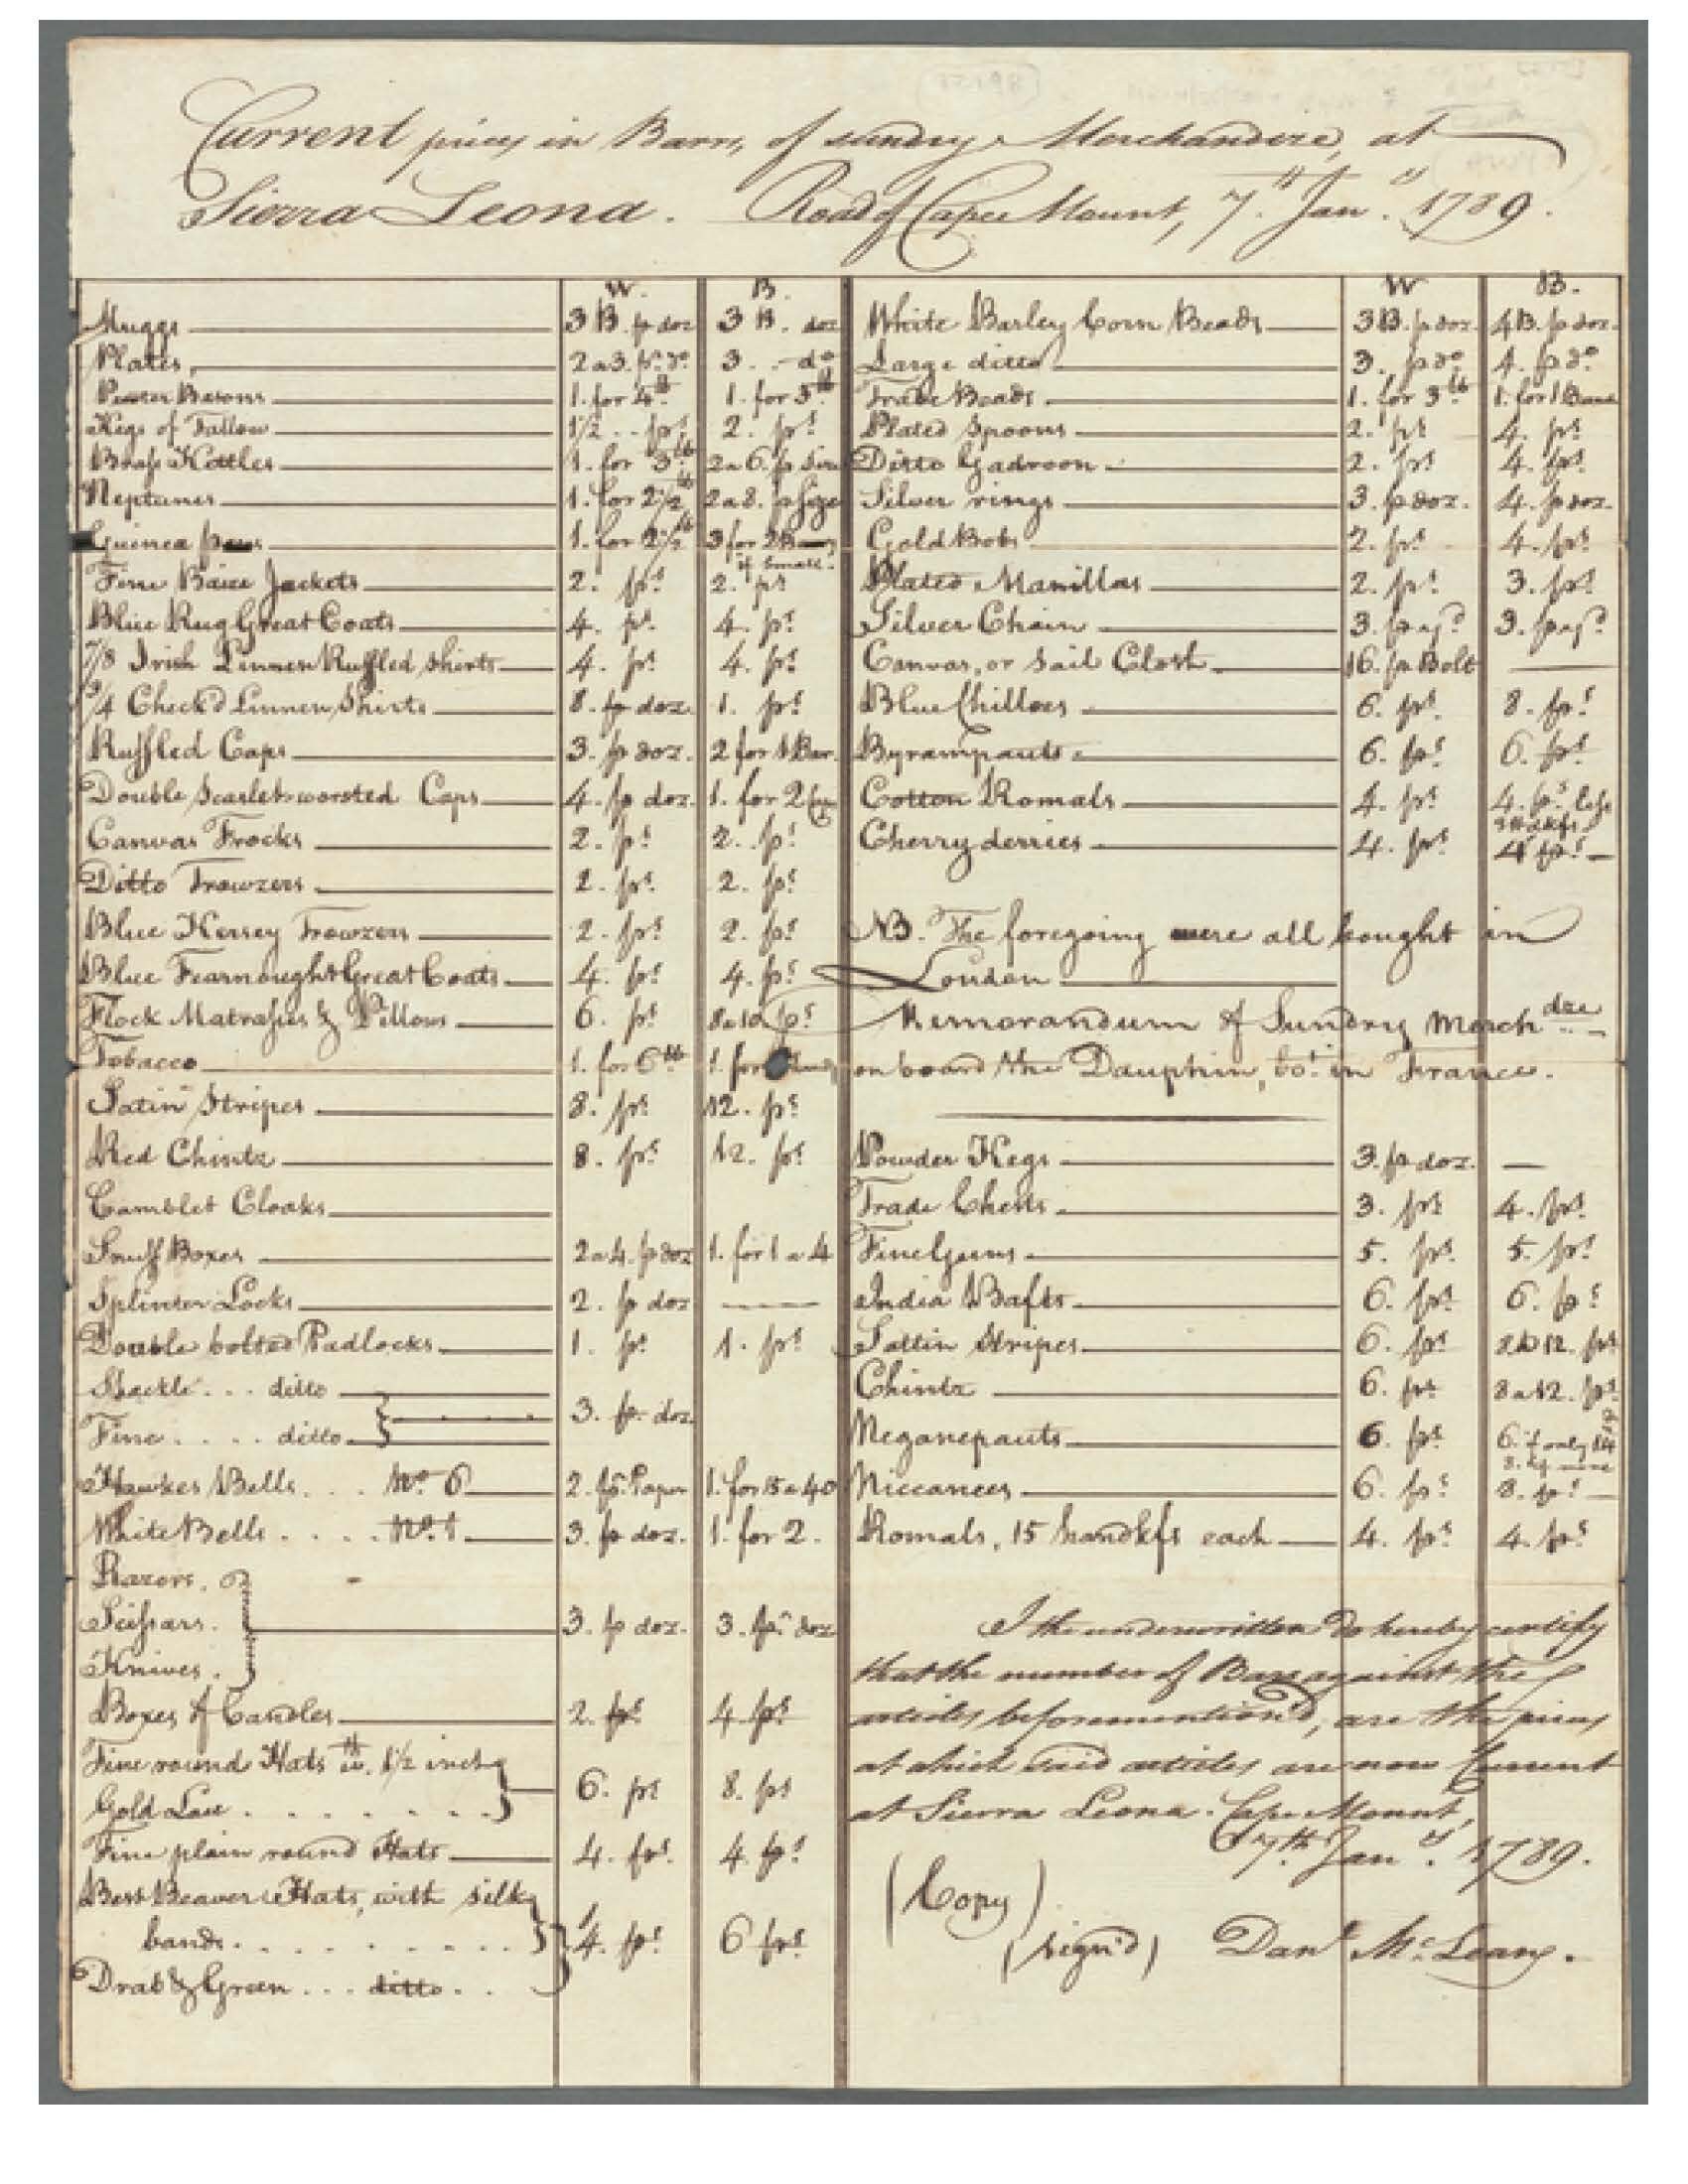 Current prices in Barrs, of sundry Merchandize, at
Sierra Leona. Road of Cape Mount, 7th Jany. 1789.
W. B.
Muggs 3 B. p doz 3 B. doz
Plates, 2 a 3. pr. do 3. - do
Pewter Basons 1. for 4 lb 1. for 3 lb
Kegs of Tallow 1 1/2 .. ps 2. ps
Brass Kettles 1. for 3 lb 2 a 6. p size
Neptunes 1. for 2 1/2 lb 2 a 8. p size
Guinea pans 1. for 2 1/2 lb 3 for 2 Barrs if small.
Fine Baize Jackets 2. ps 2. ps
Blue Rug Great Coats 4. ps. 4. ps
7/8 Irish Linnen Ruffled Shirts 4. ps 4. ps
3/4 Check'd Linnen Shirts 8. p doz. 1. ps
Ruffled Caps 3. p doz. 2 for 1 Bar.
Double Scarlet worsted Caps 4. p doz. 1. for 2 Caps
Canvas Frocks 2. ps 2. ps
Ditto Trowzers 2. ps 2. ps
Blue Kersey Trowzers 2. ps 2. ps
Blue Fearnought Great Coats 4. ps 4. ps
Flock Matrasses & Pillows 6. ps 8 a 10 ps
Tobacco 1. for 6 lb 1. for
Satin Stripes 8. ps 12. ps
Red Chintz 8. ps 12. ps
Camblet Cloaks
Snuff Boxes 2 a 4. p doz 1. for 1 a 4
Splinter Locks 2. p doz
Double bolted Padlocks 1. ps 1. ps
Shackle . . . ditto
Fine . . . . ditto 3. p. doz
Hawkes Bells . . . No. 6 2. p. Paper 1. for 15 a 40
White Bells . . . . No. 1 3. p doz. 1. for 2.
Razors.
Scissars. 3. p doz. 3. p. doz
Knives.
Boxes of Candles 2. ps 4. ps
Fine round Hats wth. 1 1/2 inch
Gold Lace . . . . . . . 6. ps 8. ps
Fine plain round Hats 4. ps. 4. ps
Best Beaver Hats, with silk
bands . . . . . . . . . 4. ps 6 ps
Drab & Green . . . ditto . .
W B.
White Barley Corn Beads 3 B. p doz. 4 B. p doz.
Large ditto 3. p do 4. p do
Trade Beads 1. for 3 lb 1. for 1
Plated Spoons 2. ps 4. ps
Ditto Gadroon 2. ps 4. ps
Silver rings 3. p doz. 4. p doz.
Gold Bobs 2. ps 4. ps
Plated Manillas 2. ps 3. ps
Silver Chain 3. p 3. p
Canvas, or Sail Cloth 16. p Bolt
Blue Chilloes 6. ps. 8. ps
Byrampauts 6. ps 6. ps
Cotton Romals 4. ps 4. ps less
Cherryderries 4. ps 4 ps
NB. The foregoing were all bought in
London
Memorandum of Sundry Merchdze
on board the Dauphin, bot. in France.
Powder Kegs 3. p doz.
Trade Chests 3. ps 4. ps
Fine Guns 5. ps 5. ps
India Bafts 6. ps 6. ps
Sattin Stripes 6. ps 8 a 12. ps
Chintz 6. ps 8 a 12. ps
Neganepauts 6. ps 6. if only 14
Niccanees 6. ps 8. ps
Romals, 15 handkfs each 4. ps 4. ps
I the underwritten do hereby certify
that the number of Bars against the
articles beforemention'd, are the prices
at which said articles are now Current
at Sierra Leona. Cape Mount,
7th. Jany. 1789.
(Copy)
(sign'd) Danl McLeany.